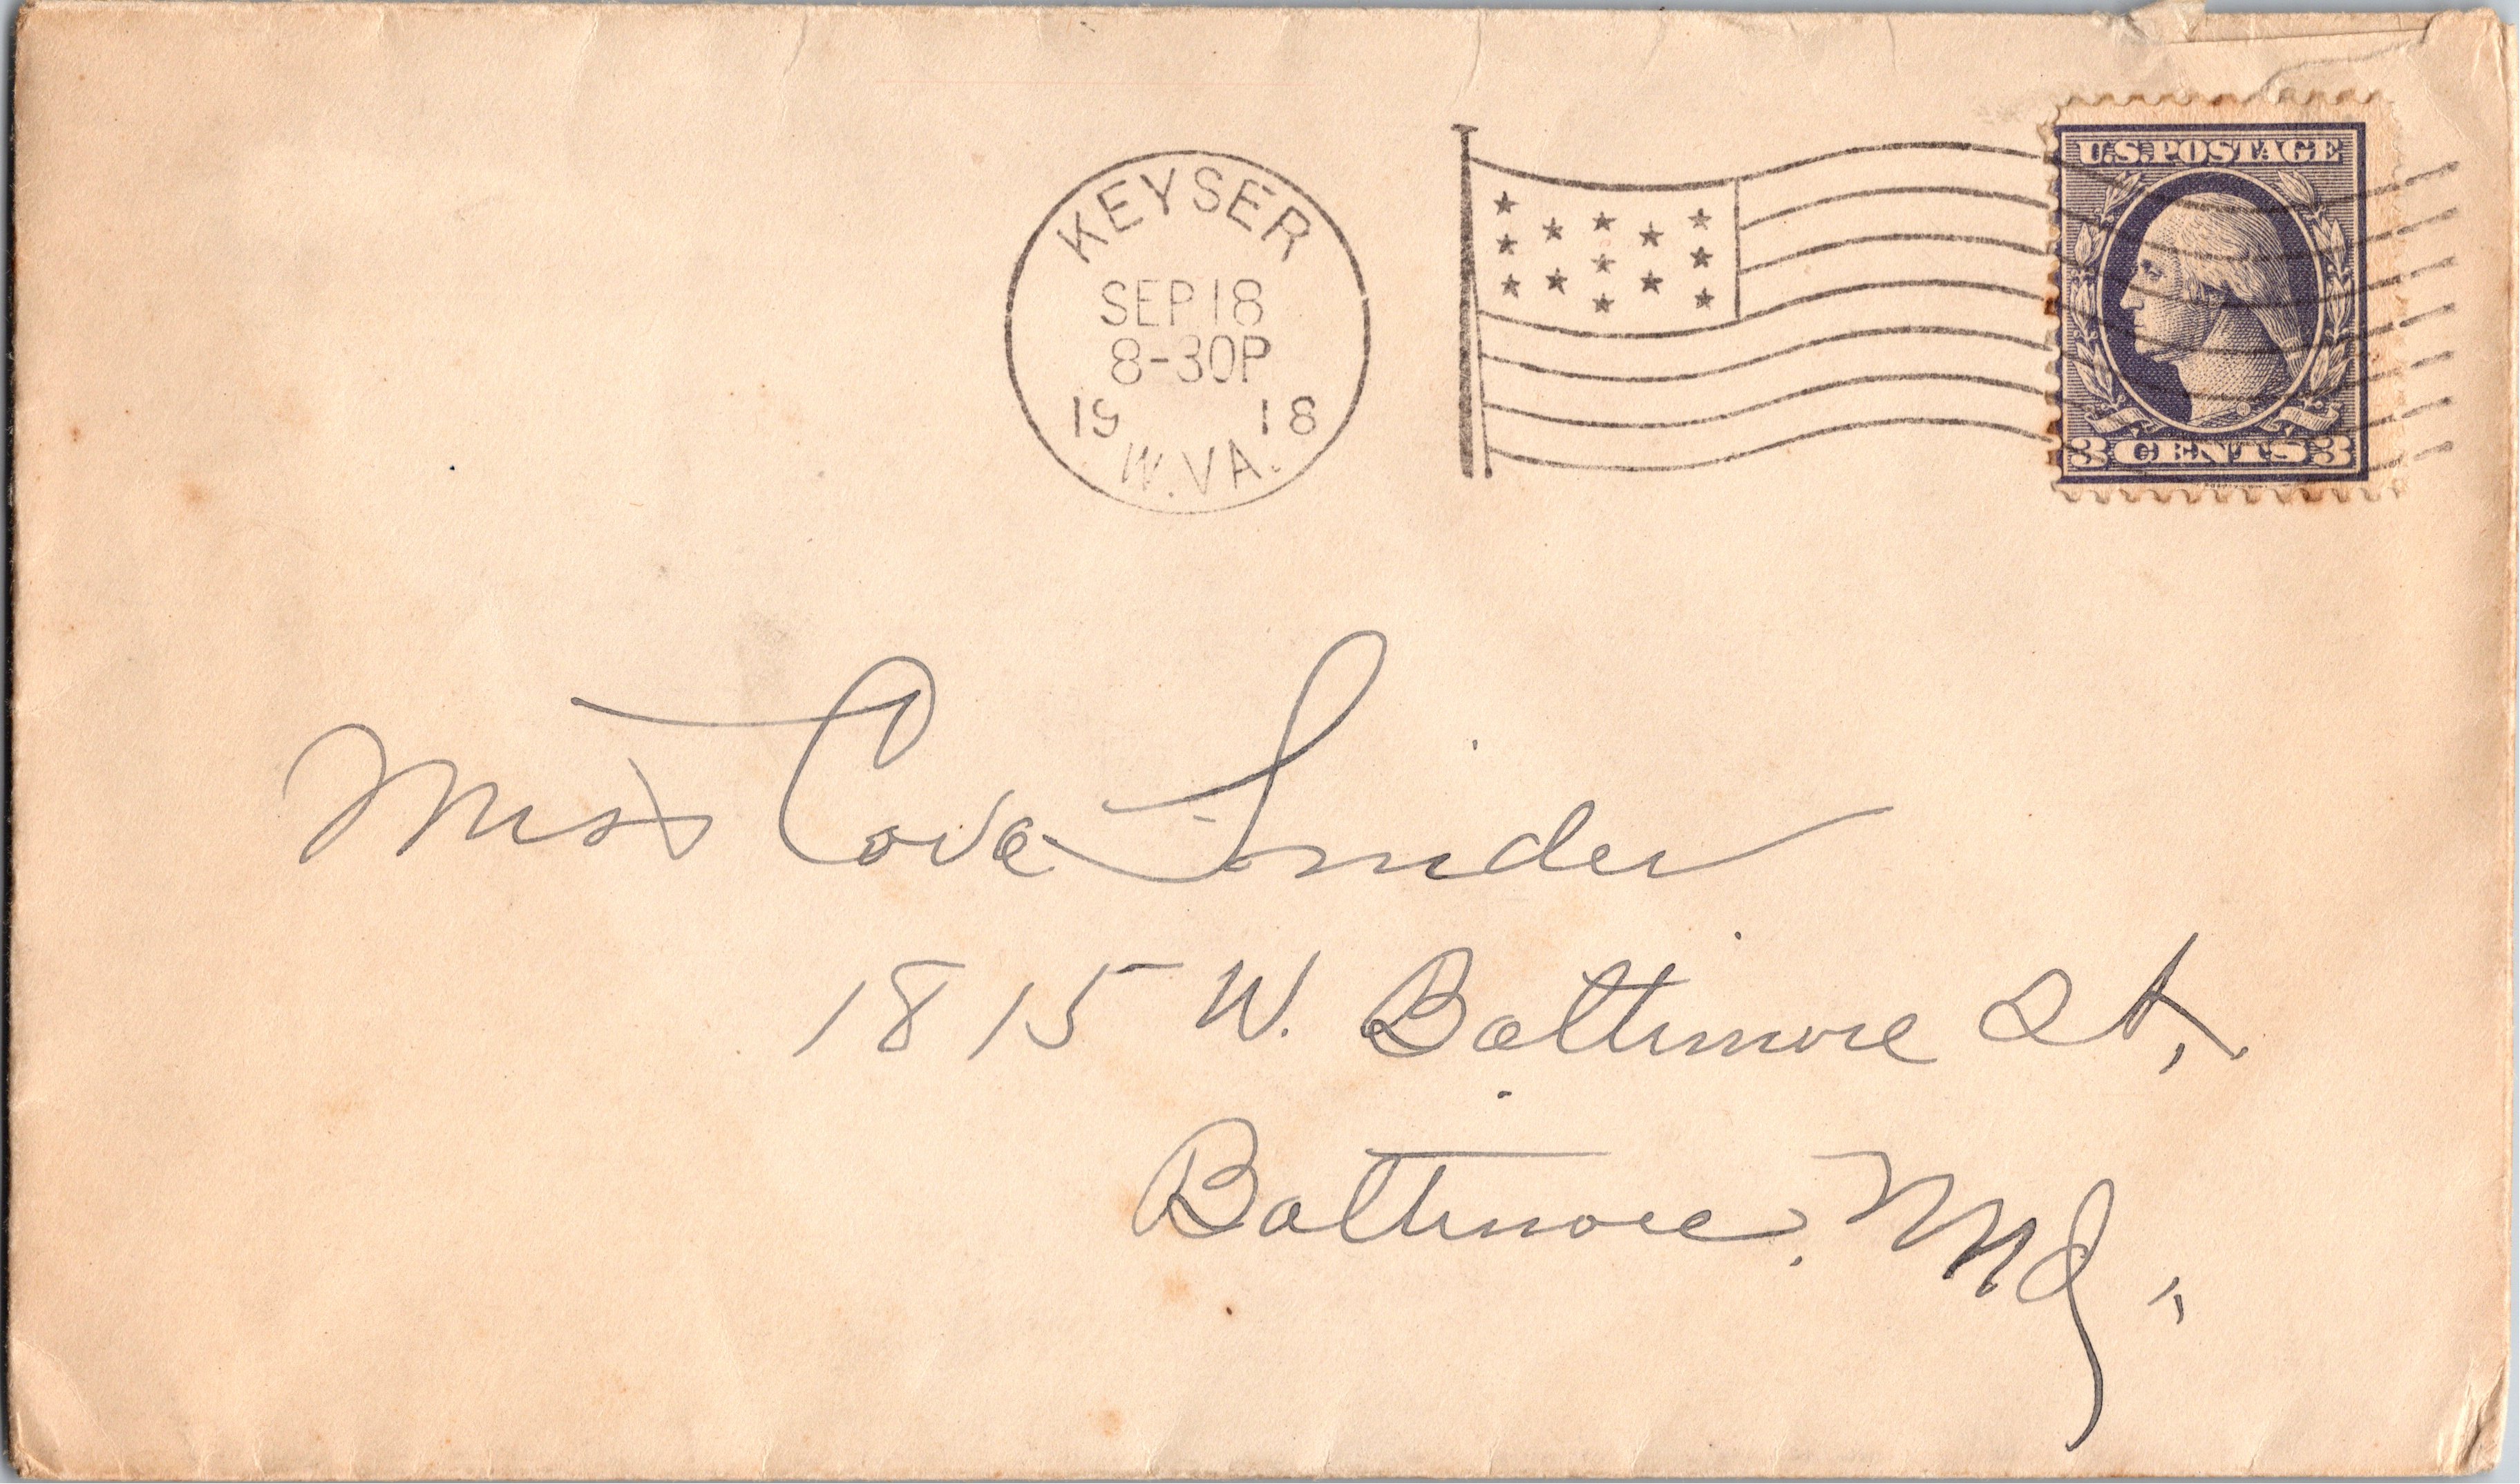 KEYSER
SEP 18
8-30P
19 18
W.VA.
U.S. POSTAGE
3 CENTS 3
Miss Cova Snider
1815 W. Baltimore St.,
Baltimore, Md.,